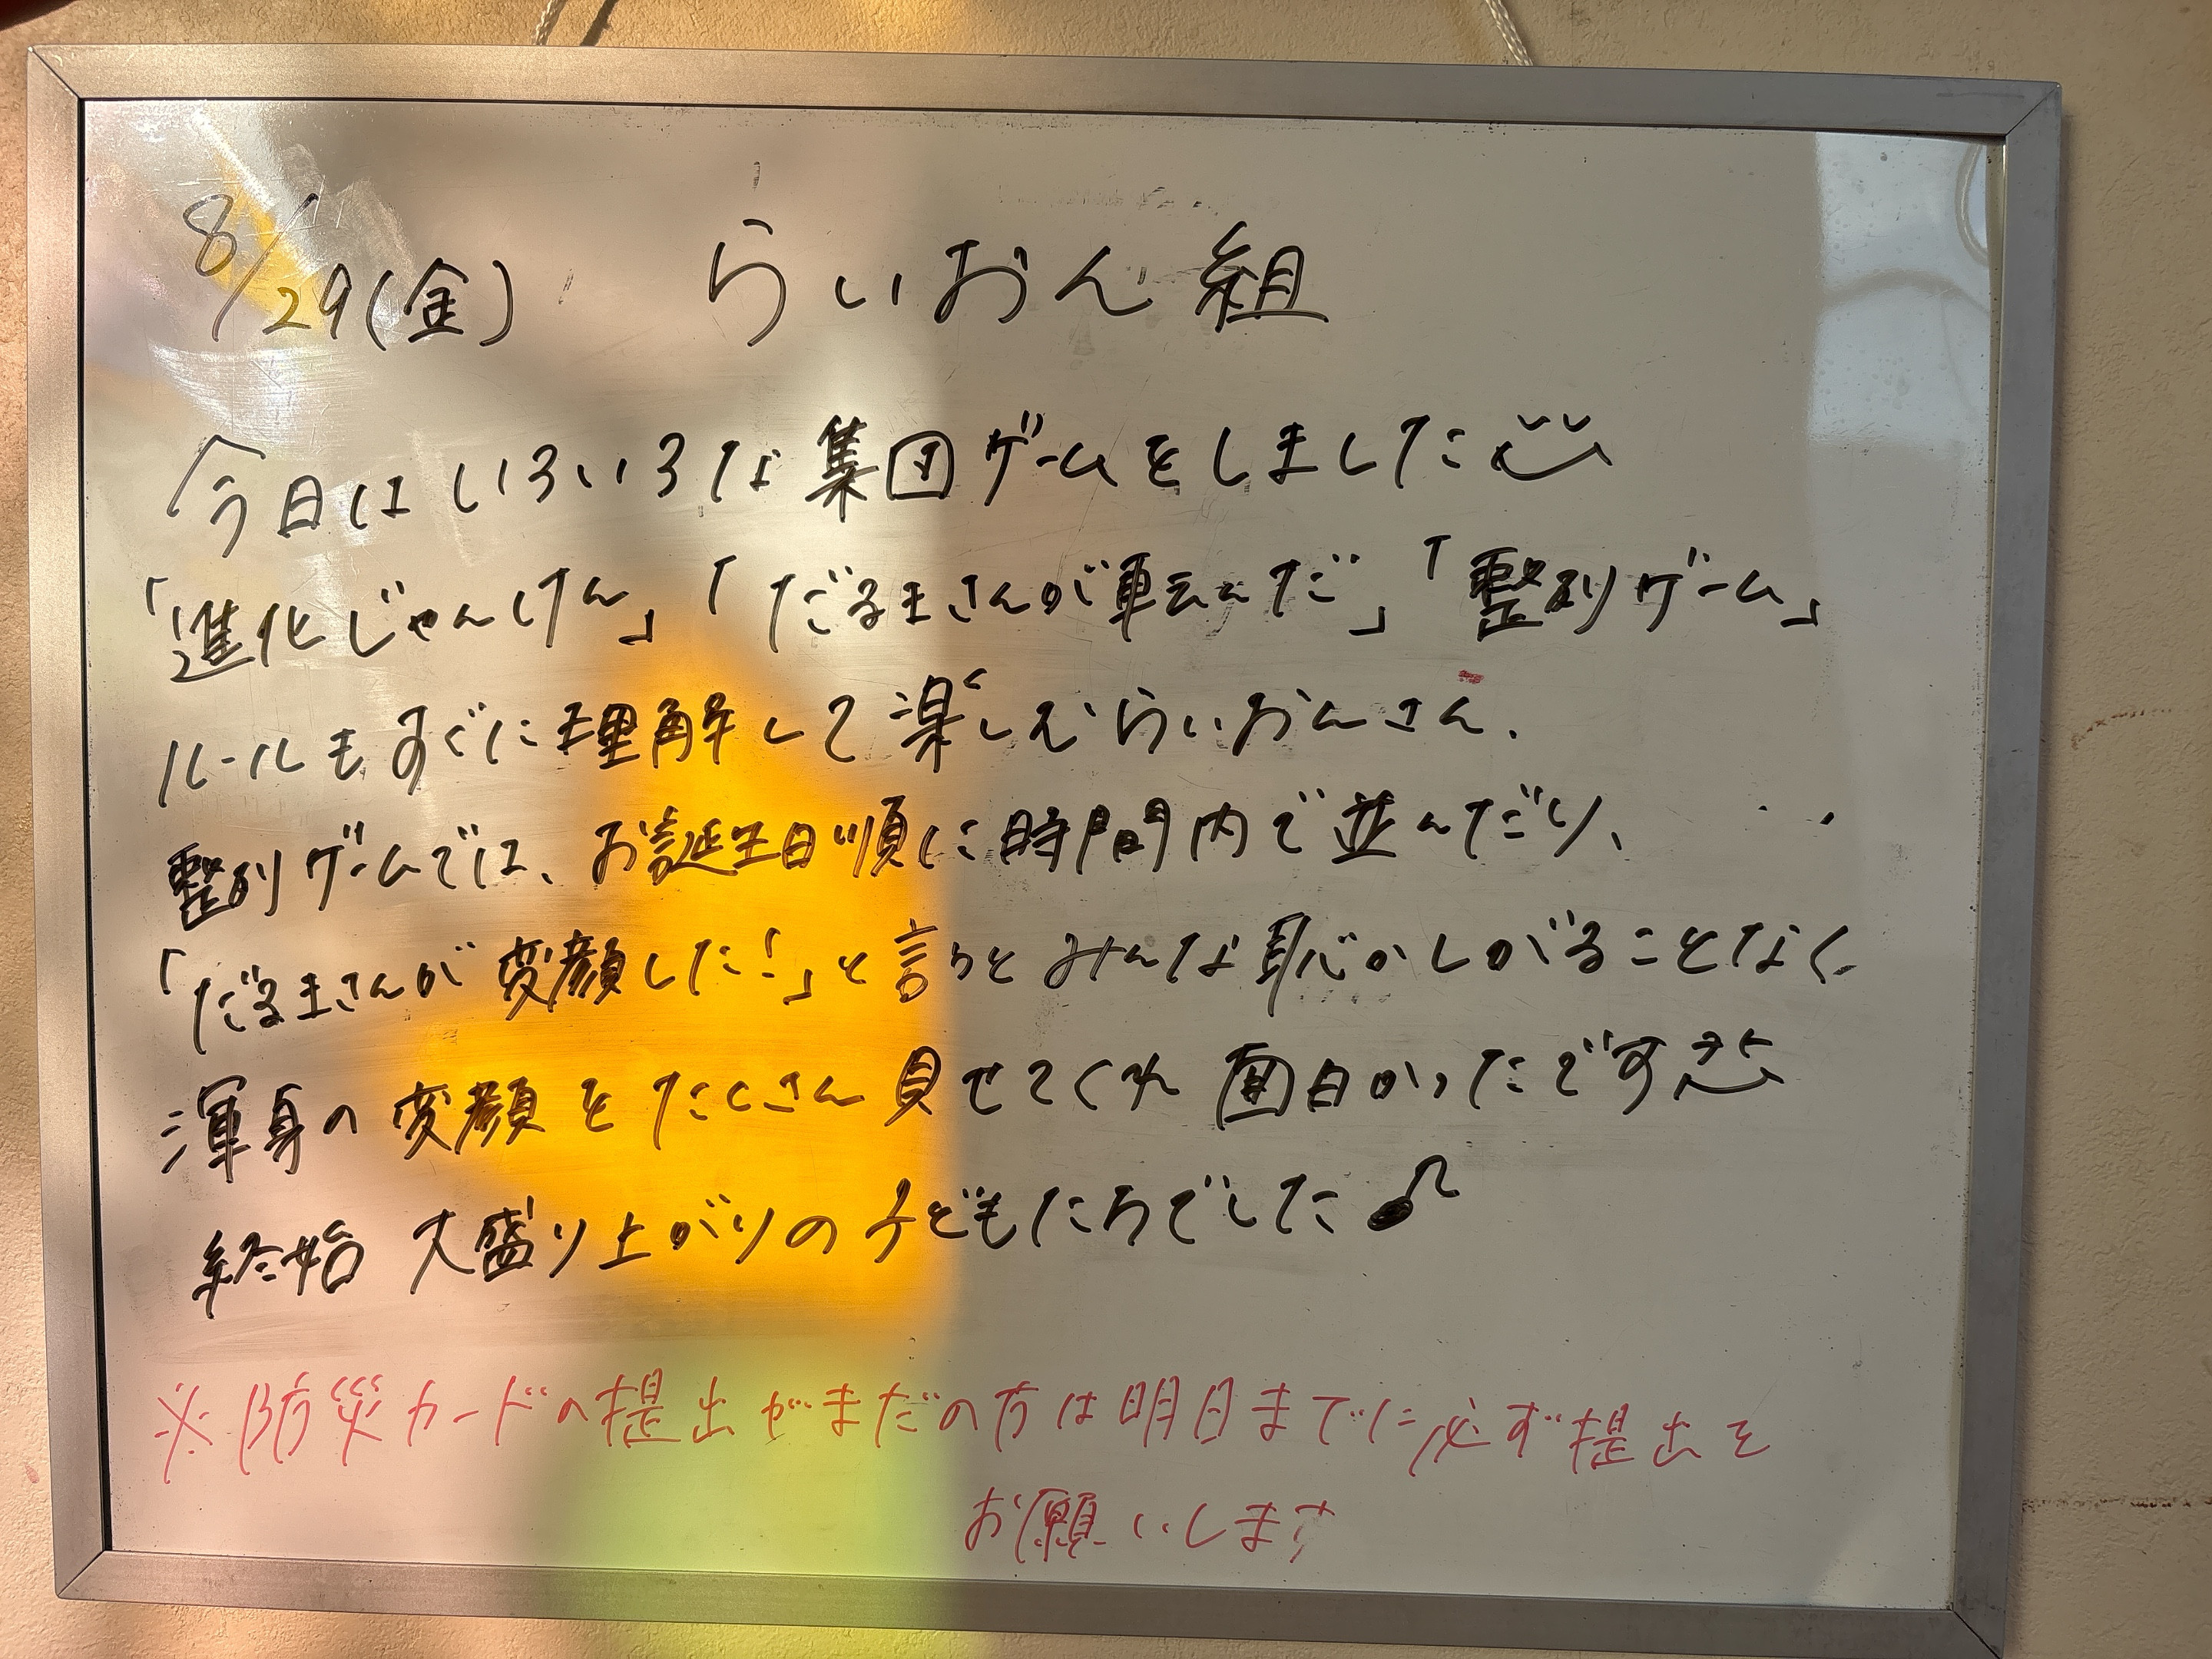 8/29(金) らいおん組
今日はいろいろな集団ゲームをしました
「進化じゃんけん」「だるまさんが転んだ」「整列ゲーム」
ルールもすぐに理解して楽しむらいおんさん.
整列ゲームでは、お誕生日順に時間内で並んだり、
「だるまさんが変顔した!」と言うとみんな恥かしがることなく
渾身の変顔をたくさん見せてくれ面白かったです
終始 大盛り上がりの子どもたちでした♪
※防災カードの提出がまだの方は明日までに必ず提出を
お願いします